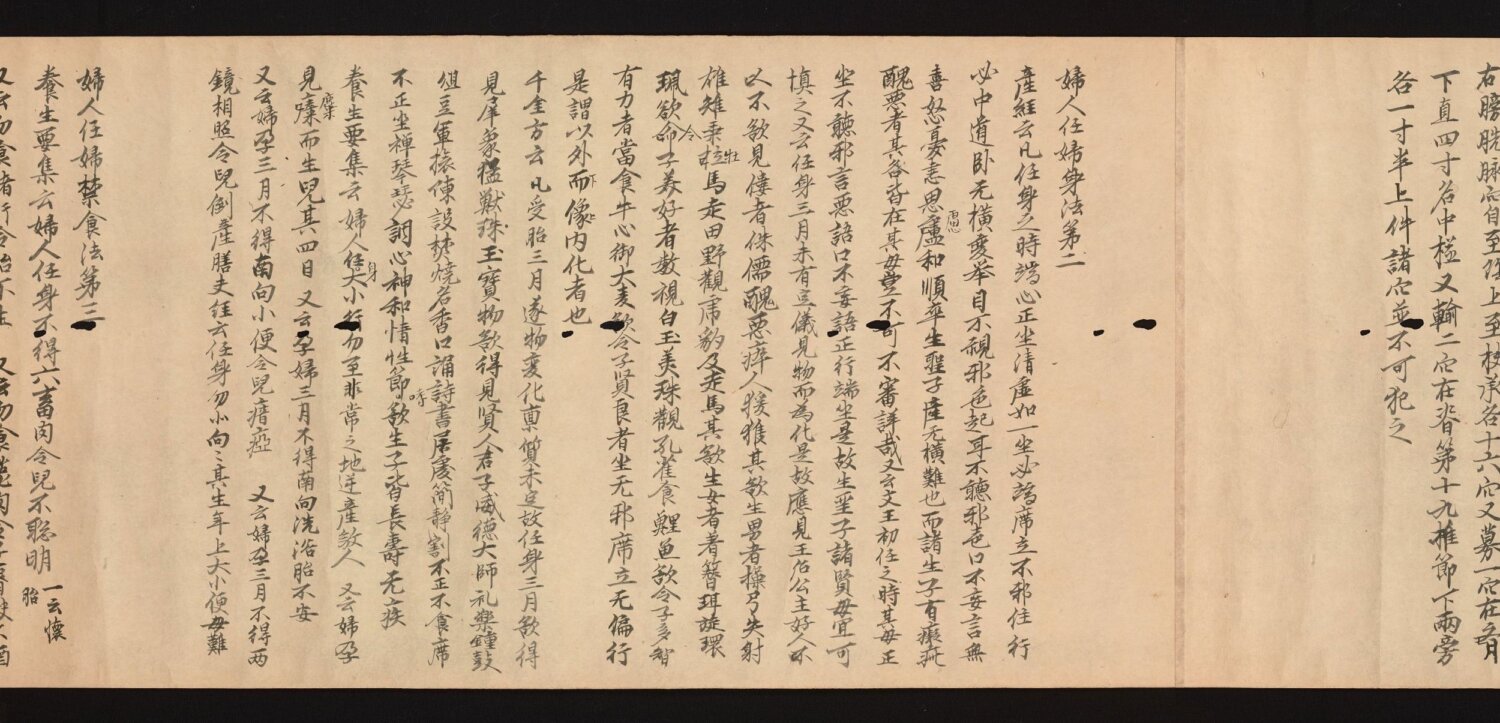 右膀胱脉宍自至陰上至扶承各十六穴又募一穴在
下直四寸名中極又輸二穴在脊第十九椎節下兩旁
各一寸半上件諸穴並不可犯之
婦人任婦身法第二
産經云凡任身之時端心正坐清虚如一坐必端席立不邪住行
必中道卧无横変挙目不視邪色起耳不聽邪色口不妄言無
喜怒憂恚思慮和順卒生聖子産无横難也而諸生子有癡疵
醜悪者其各皆在其母豈不可不審詳哉又云文王初任之時其母正
坐不聽邪言悪語口不妄語正行端坐是故生聖子諸賢母宜可
慎之又云任身三月未有定儀見物而為化是故應見王后公主好人不
以不欲見僂者侏儒醜悪瘁人猨猴其欲生男者操弓矢射
雄雉乗牡馬走田野觀虎豹及走馬其欲生女者著簪珥旋環
珮欲令子美好者數視白玉美珠觀孔雀食鯉魚欲令子多智
有力者當食牛心御大麦欲令子賢良者坐无邪席立无偏行
是謂以外而像内化者也
千金方云凡受胎三月逐物変化禀質未定故任身三月欲得
見犀象猛獣珠玉寳物欲得見賢人君子盛德大師礼樂鐘鼓
俎豆軍旅陳設焚燒名香口誦詩書居處簡静割不正不食席
不正不坐禅琴瑟調心神和情性節嗜欲生子皆長壽无疾
養生要集云婦人任身大小行勿至非常之地逆産敜人 又云婦孕
見麋而生兒其四目 又云孕婦三月不得南向洗浴胎不安
又云婦孕三月不得南向小便令兒瘖瘂 又云婦孕三月不得两
鏡相照令兒倒産膳夫経云任身勿小向〻其生年上大小便母難
婦人任婦禁食法第三
養生要集云婦人任身不得六畜肉令兒不聡明 一云懷胎